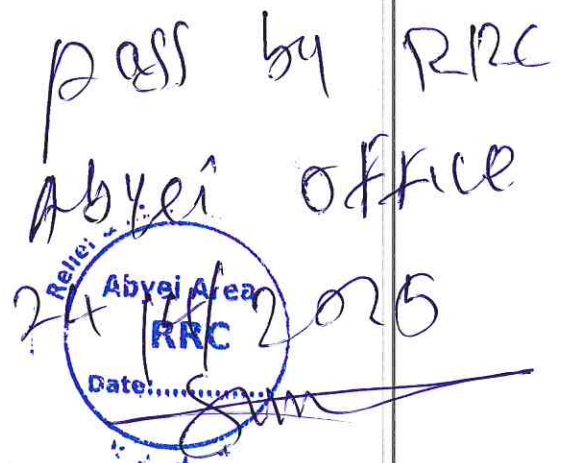 pass by RRC
Abyei office
Relief
Abyei Area
RRC
Date:..................